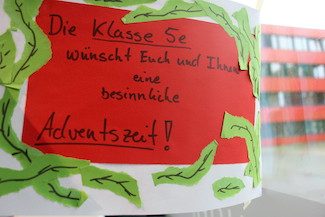 Die Klasse 5e
wünscht Euch und Ihnen
eine
besinnliche
Adventszeit!